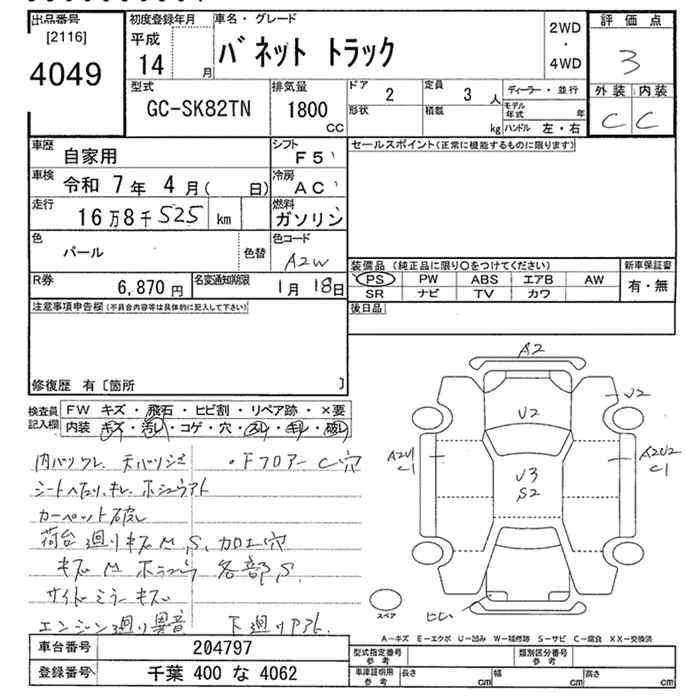 出品番号
[2116]
4049
初度登録年月
平成
14 月
車名・グレード
バネット トラック
2WD
・
4WD
評価点
3
外装 内装
C C
型式
GC-SK82TN
排気量
1800
CC
ドア
2
形状
定員
3 人
積載
kg
ディーラー・並行
モデル年式 年
ハンドル 左・右
車歴
自家用
シフト
F5
車検
令和 7年 4月( 日)
冷房
AC
走行
16万8千525 km
燃料
ガソリン
色
パール
色替
色コード
A2W
R券
6,870円
名変通知期限
1月 18日
セールスポイント(正常に機能するものに限ります)
装備品 (純正品に限り○をつけてください)
新車保証書
PS PW ABS エアB AW
SR ナビ TV カワ
有・無
後日品
注意事項申告欄(不具合内容等は具体的に記入して下さい)
修復歴 有[箇所 ]
検査員
記入欄
FW キズ・飛石・ヒビ割・リペア跡・×要
内装 キズ・汚レ・コゲ・穴・スレ・キレ・破レ
内バリワレ
・Fフロアー C穴
カーペット破レ
荷台廻りキズM,S,加工穴
各部S
サイドミラーキズ
エンジン廻り異音
下廻り
A2
V2
U2
A2U1
C1
A2U2
C1
U3
S2
ヒビ
スペア
A-キズ E-エクボ U-凹み W-補修跡 S-サビ C-腐食 XX-交換済
車台番号
204797
登録番号
千葉 400 な 4062
型式指定番号
参考
類別区分番号
参考
車庫証明用
参考
長さ cm
幅 cm
高さ cm